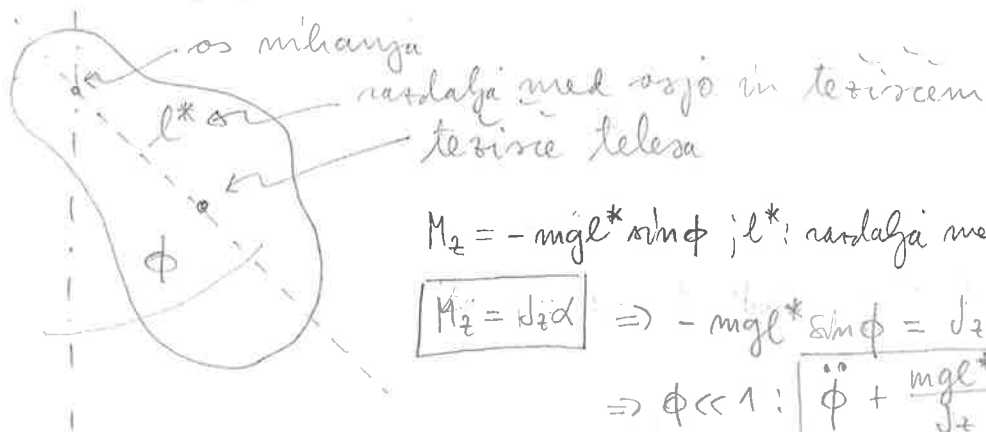 os nihanja
l* razdalja med osjo in težiščem
težišče telesa
ϕ
M_z = -mgl* sinϕ ; l*: razdalja me
M_z = J_z α ⇒ -mgl* sinϕ = J_z
⇒ ϕ << 1 : ϕ̈ + mgl*/J_z